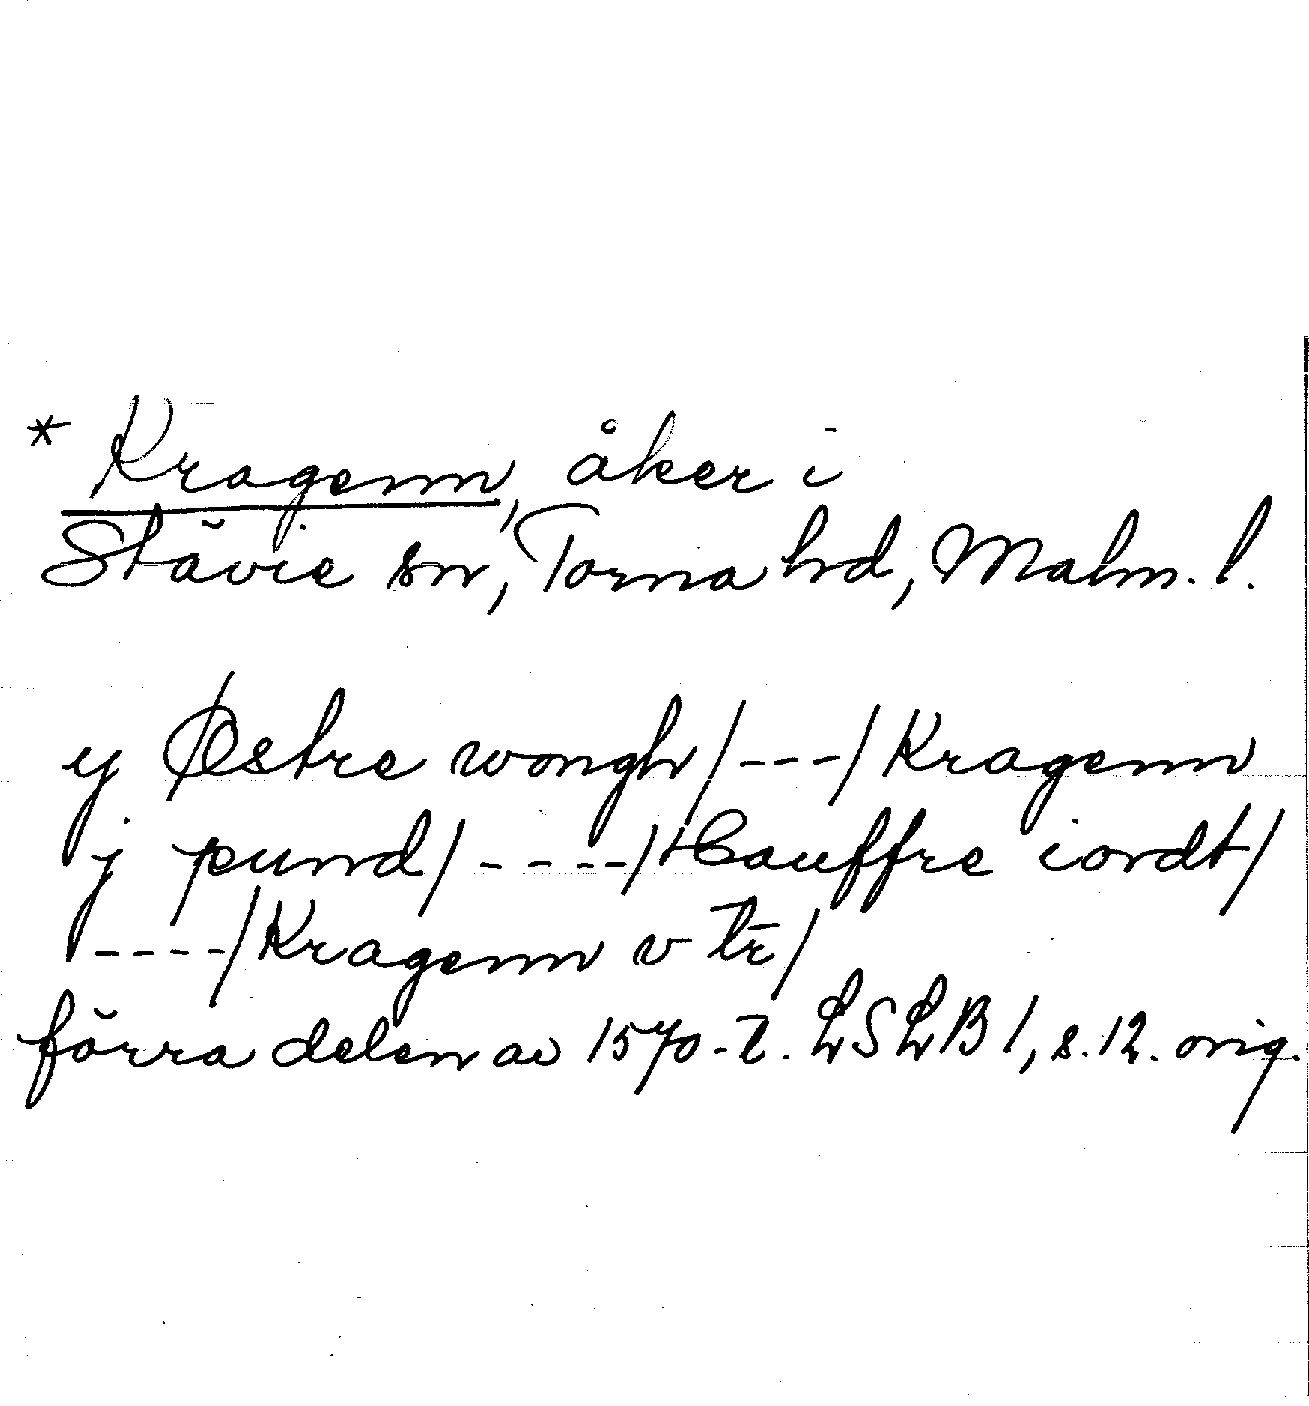 * Kragenn, åker i
Stävie sn, Torna hd, Malm. l.
y Østre wongh/---/Kragenn
j pund/----/Hauffre iordt/
----/Kragenn v tr̄/
förra delen av 1570-t. LSLB 1, s. 12. orig.